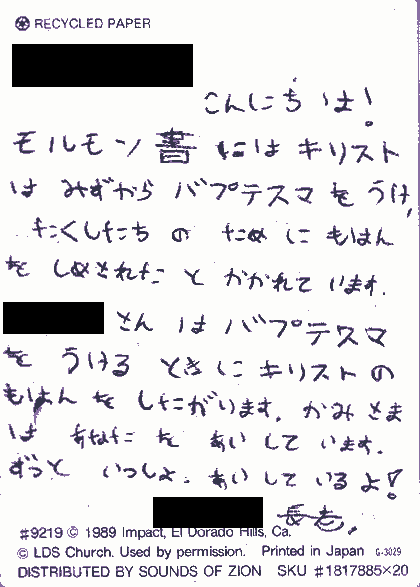 RECYCLED PAPER
こんにちは!
モルモン書にはキリスト
は みずから バプテスマ を うけ,
たくしたち の ために もはん
を しめされた と かかれて います.
さん は バプテスマ
を うける ときに キリスト の
もはん を したがいます. かみさま
は あなた を あいして います.
ずっと いっしょ. あいして いるよ!
長老.
#9219 © 1989 Impact, El Dorado Hills, Ca.
© LDS Church. Used by permission. Printed in Japan G-3029
DISTRIBUTED BY SOUNDS OF ZION SKU #1817885×20